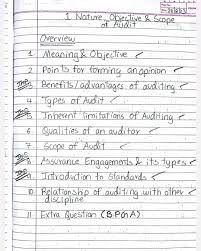 1. Nature, Objective & Scope
of Audit
Overview
1 Meaning & Objective
2 Points for forming an opinion
3 Benefits/advantages of auditing
4 Types of Audit
5 Inherent limitations of Auditing
6 Qualities of an auditor
7 Scope of Audit
8 Assurance Engagements & its types
9 Introduction to Standards
10 Relationship of auditing with other
discipline
11 Extra Question (B.P.G.A)